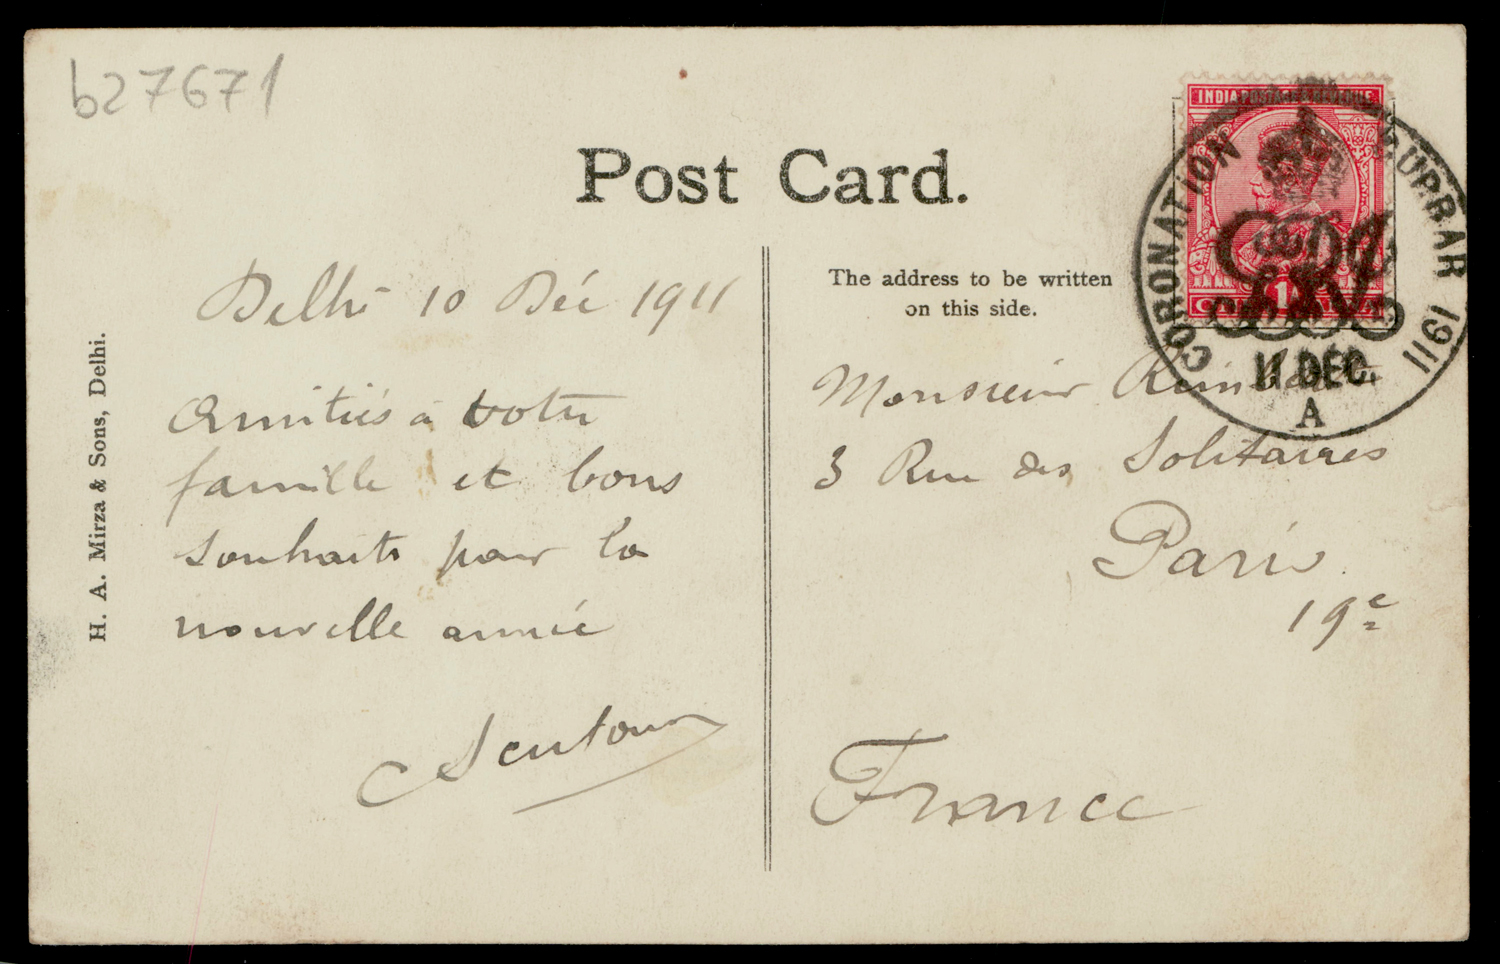 b27671
Post Card.
INDIA POSTAGE & REVENUE
CORONATION DURBAR 1911
11 DEC.
A
The address to be written
on this side.
H. A. Mirza & Sons, Delhi.
Delhi 10 Déc 1911
Amitiés à votre
famille et bons
souhaits pour la
nouvelle année
Monsieur
3 Rue des Solitaires
Paris
19e
France